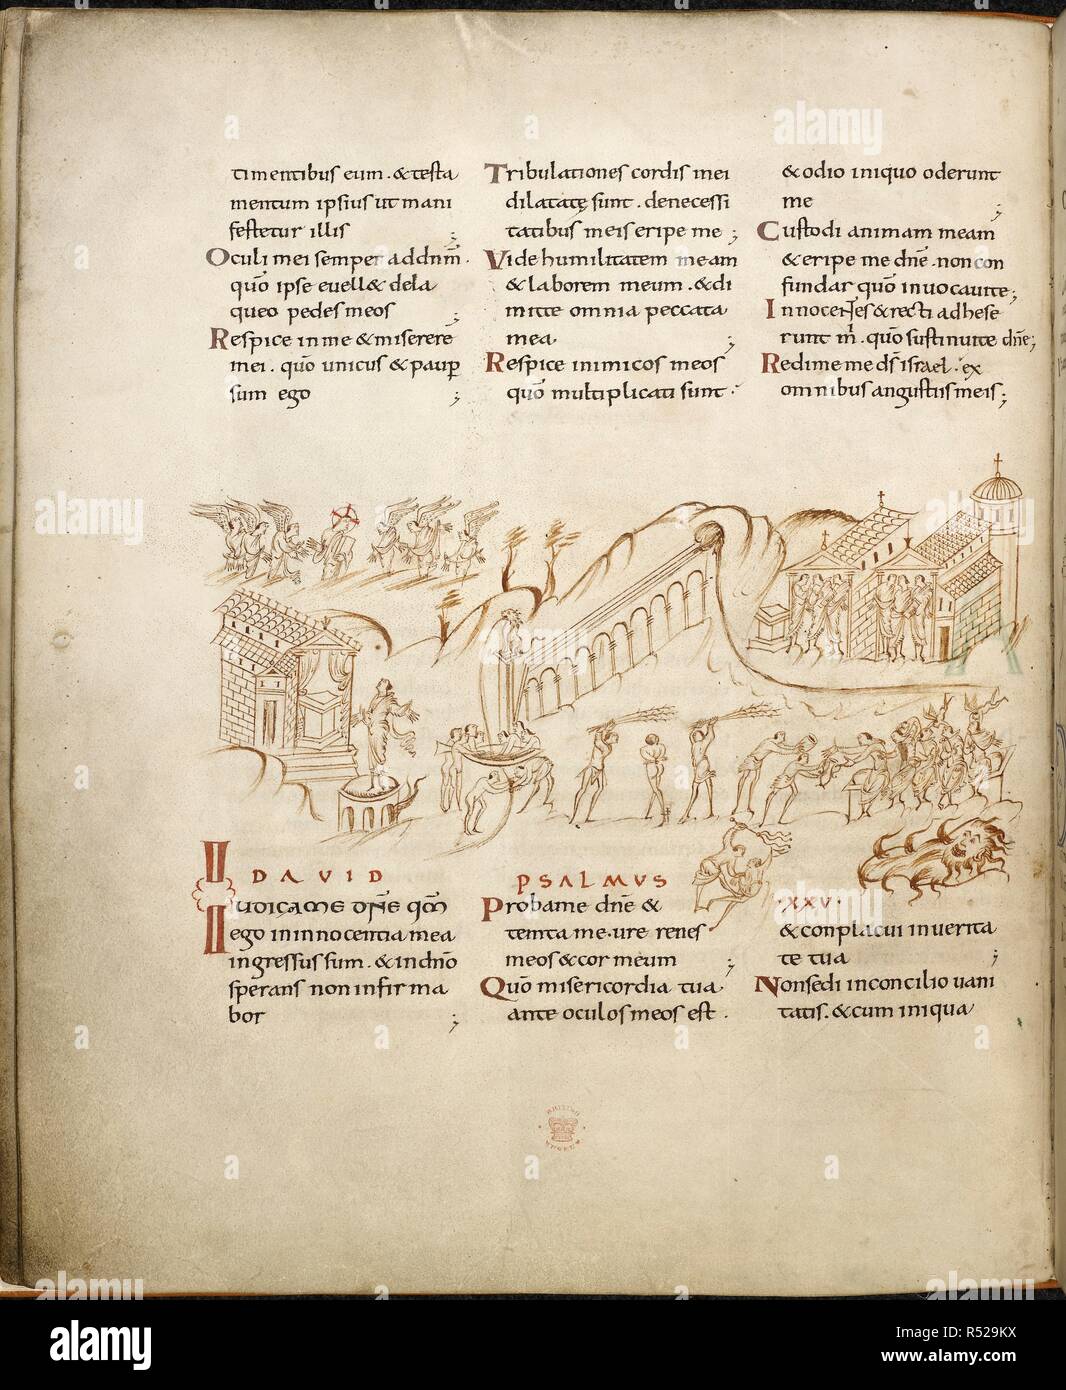 timentibus eum . & testa
mentum ipsius ut mani
festetur illis ;
Oculi mei semper ad dnm̄ .
quō ipse evell& dela
queo pedes meos ;
Respice in me & miserere
mei . quō unicus & paup̄
sum ego ;
Tribulationes cordis mei
dilatatę sunt . denecessi
tatibus meis eripe me ;
Vide humilitatem meam
& laborem meum . & di
mitte omnia peccata
mea . ;
Respice inimicos meos
quō multiplicati sunt .
& odio iniquo oderunt
me ;
Custodi animam meam
& eripe me dn̄e . non con
fundar quō invocavi te ;
Innocentes & recti adhese
runt m̄ . quō sustinui te dn̄e ;
Redime me ds̄ israel . ex
omnibus angustiis meis ;
DAVID
PSALMUS
.XXV.
IUDICA ME DN̄E QM̄
ego in innocentia mea
ingressus sum . & in dn̄o
sperans non infirma
bor ;
Proba me dn̄e &
temta me . ure renes
meos & cor meum ;
Quō misericordia tua
ante oculos meos est .
& conplacui in verita
te tua ;
Non sedi in concilio vani
tatis . & cum iniqua
BRITISH
MUSEUM
alamy
Image ID: R529KX
www.alamy.com